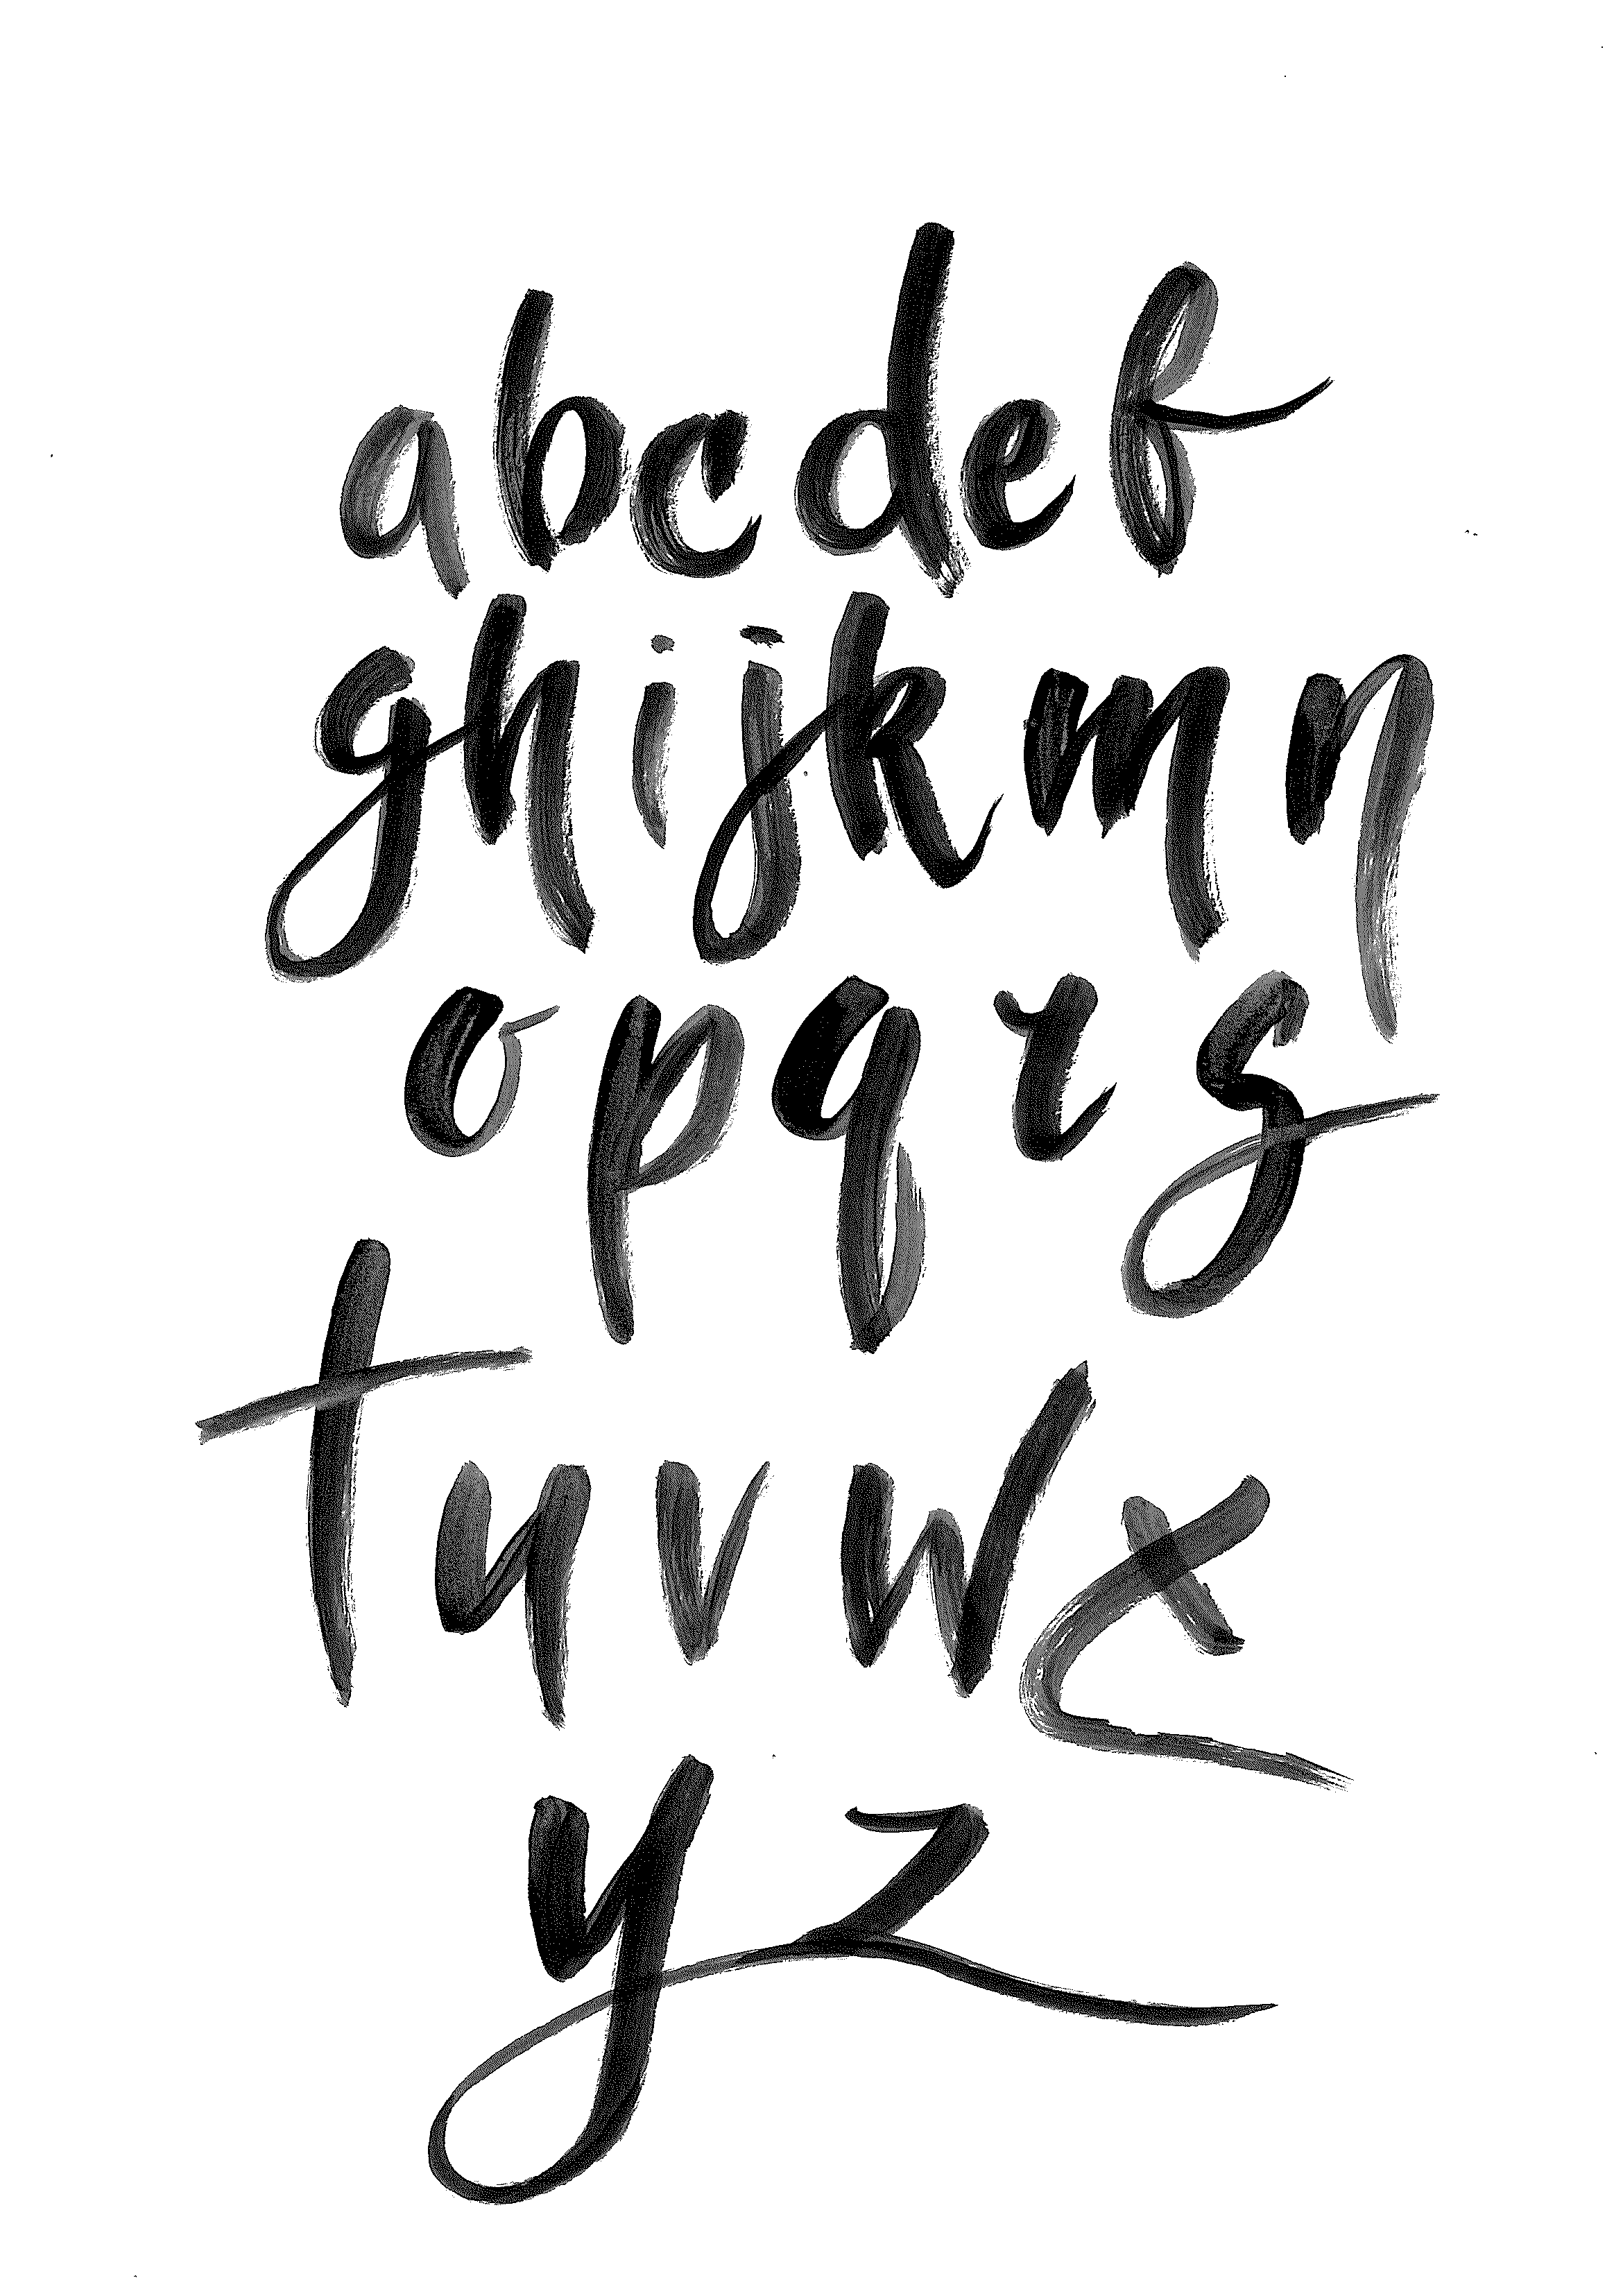 abcdef
ghijkmn
opqrs
tuvwx
yz